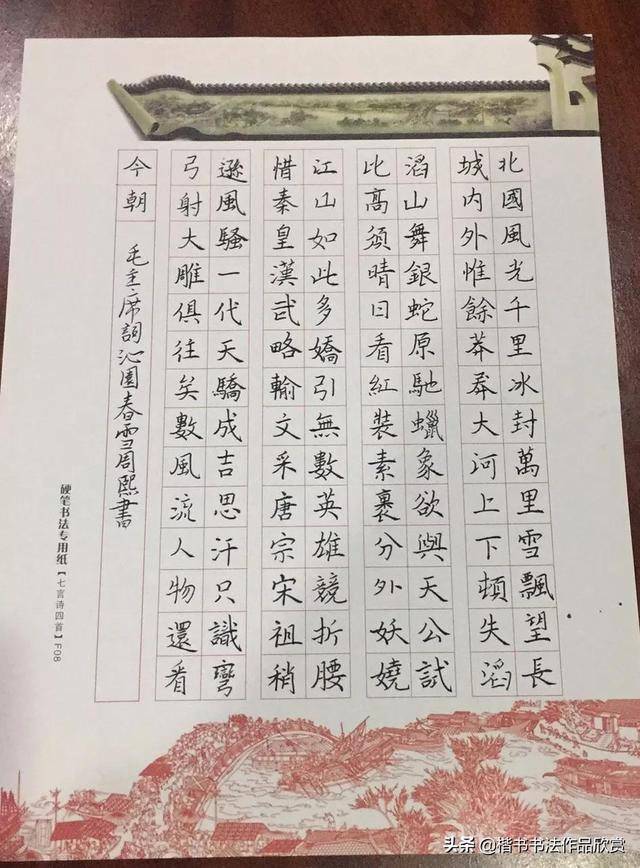 北國風光千里冰封萬里雪飄望長
城内外惟餘莽莽大河上下頓失滔
滔山舞銀蛇原馳蠟象欲與天公試
比髙須晴日看紅裝素裹分外妖嬈
江山如此多嬌引無數英雄競折腰
惜秦皇漢武略輸文采唐宗宋祖稍
遜風騷一代天驕成吉思汗只識彎
弓射大雕俱往矣數風流人物還看
今朝 毛主席詞沁園春雪周熙書
硬笔书法专用纸【七言诗四首】F08
头条 @楷书书法作品欣赏